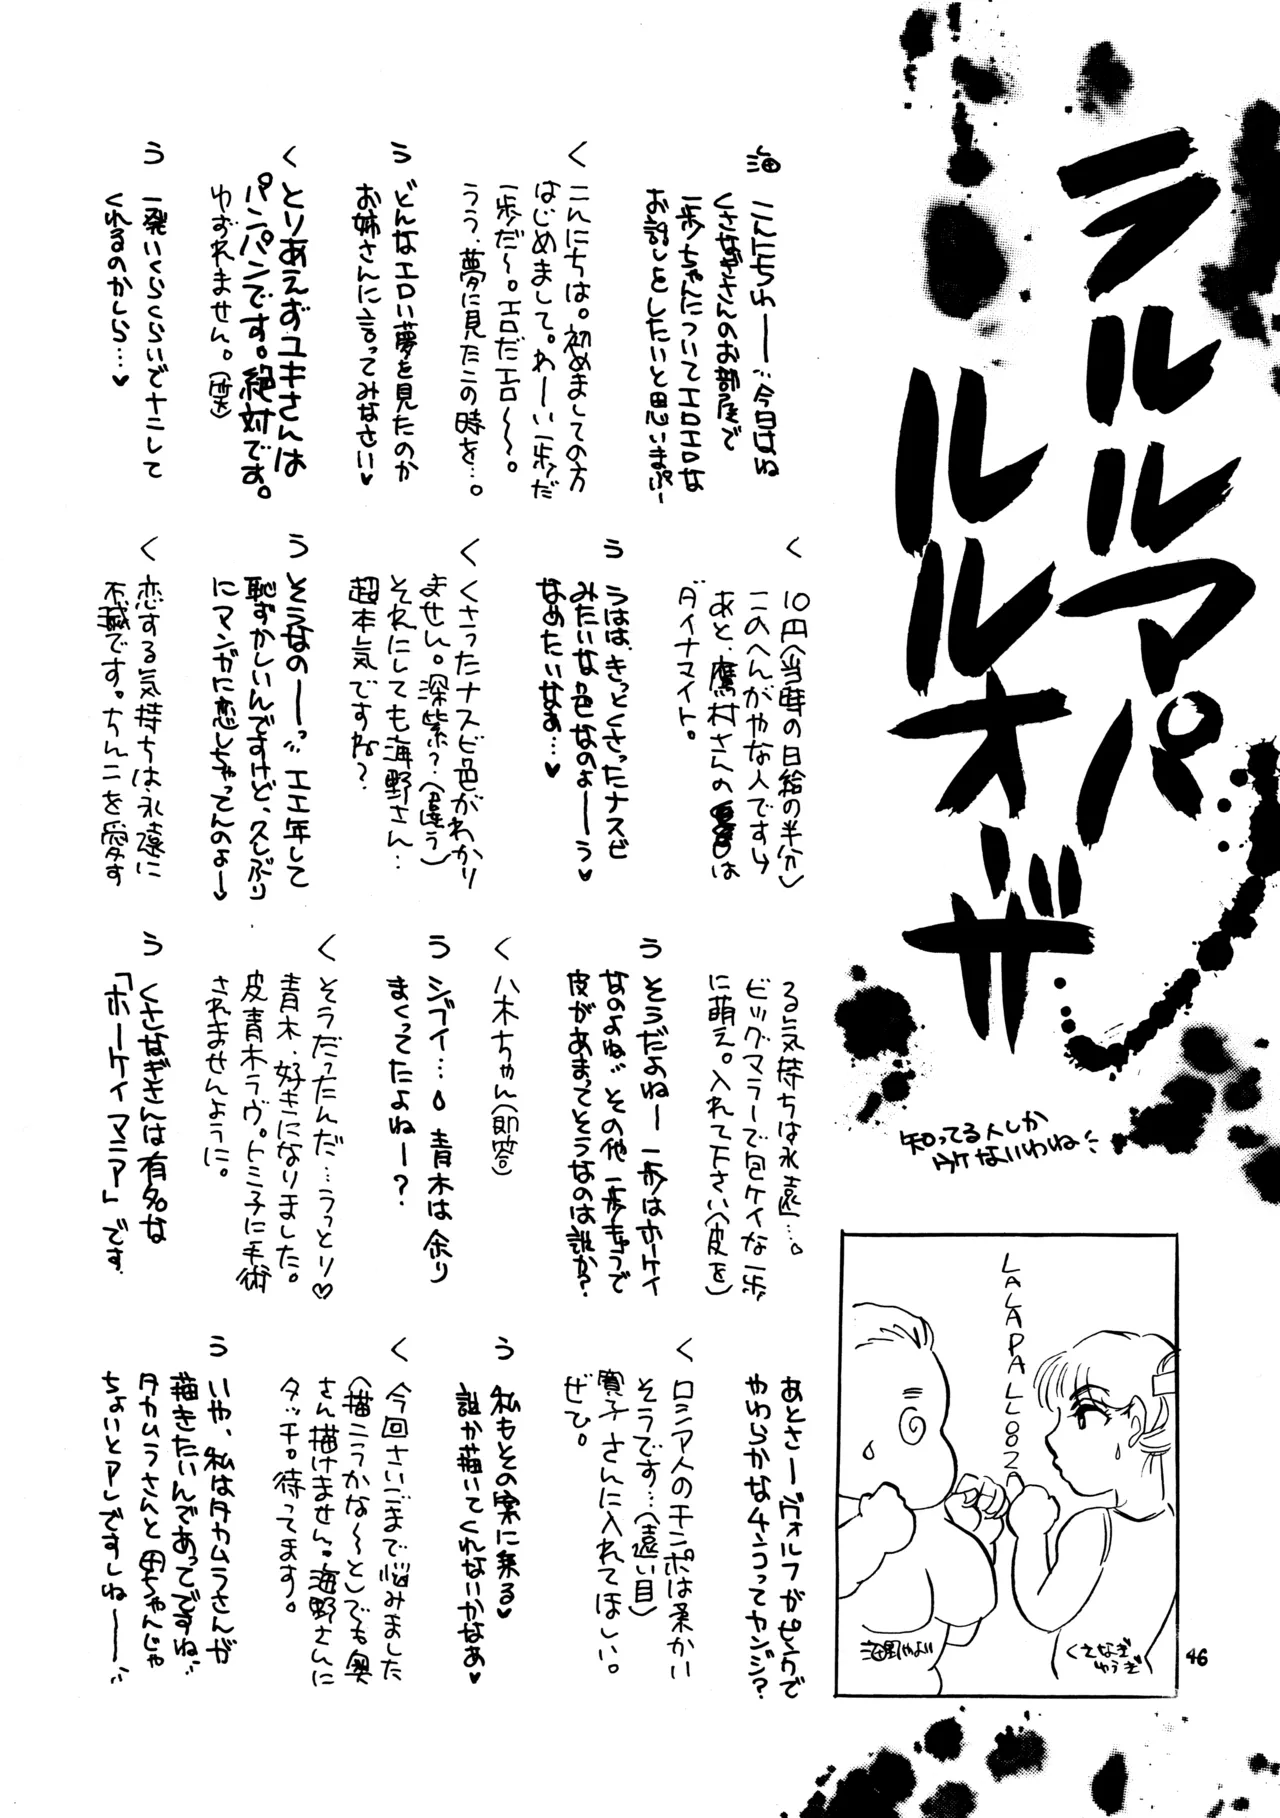 ラルルアパ
ルルオーザ
知ってる人しか
ウケないわね
海 こんにちわー…今日はね
くさなぎさんのお部屋で
一歩ちゃんについてエロエロな
お話しとしたいと思いまぷー
く こんにちは。初めましての方
はじめまして。わーい一歩だ
一歩だ〜。エロだエロ〜〜。
うう、夢に見たこの時を…。
う どんなエロい夢を見たのか
お姉さんに言ってみなさい♥
く とりあえずユキさんは
パンパンです。絶対です。
ゆずれません。
う 一発いくらくらいでナニして
くれるのかしら…♥
く 10円（当時の日給の半分）
このへんがやな人ですね
あと、鷹村さんの は
ダイナマイト。
う うはは、きっとくさったナスビ
みたいな色なのよーう♥
なめたいなぁ…♥
く くさったナスビ色がわかり
ません。深紫？（違う）
それにしても海野さん…
超本気ですね？
う そうなのーっ エエ年して
恥ずかしいんですけど、久しぶり
にマンガに恋しちゃってんのよー♥
く 恋する気持ちは永遠に
不滅です。ちんこを愛す
る気持ちは永遠…。
ビッグマラーで包ケイな一歩
に萌え。入れて下さい（皮を）
う そうだよねー 一歩はホーケイ
なのよね その他一歩キャラで
皮があまってそうなのは誰か？
く 八木ちゃん（即答）
う シブイ… 青木は余り
まくってたよねー？
く そうだったんだ…うっとり♡
青木、好きになりました。
皮青木ラヴ。トミ子に手術
されませんように。
う くさなぎさんは有名な
「ホーケイマニア」です
あとさーヴォルフがピンクで
やわらかなチンコってカンジ？
く ロシア人のチンポは柔かい
そうです…（遠い目）
寛子さんに入れてほしい。
ぜひ。
う 私もその案に乗る♥
誰か描いてくれないかなぁ♥
く 今回さいごまで悩みました
（描こうかな〜と）でも奥
さん描けません。海野さんに
タッチ。待ってます。
う いや、私はタカムラさんが
描きたいんであってですね
タカムラさんと田ちゃんじゃ
ちょいとアレですしねー…
LALAPALLOOZA
海野やよい
くさなぎ
ゆうぎ
46